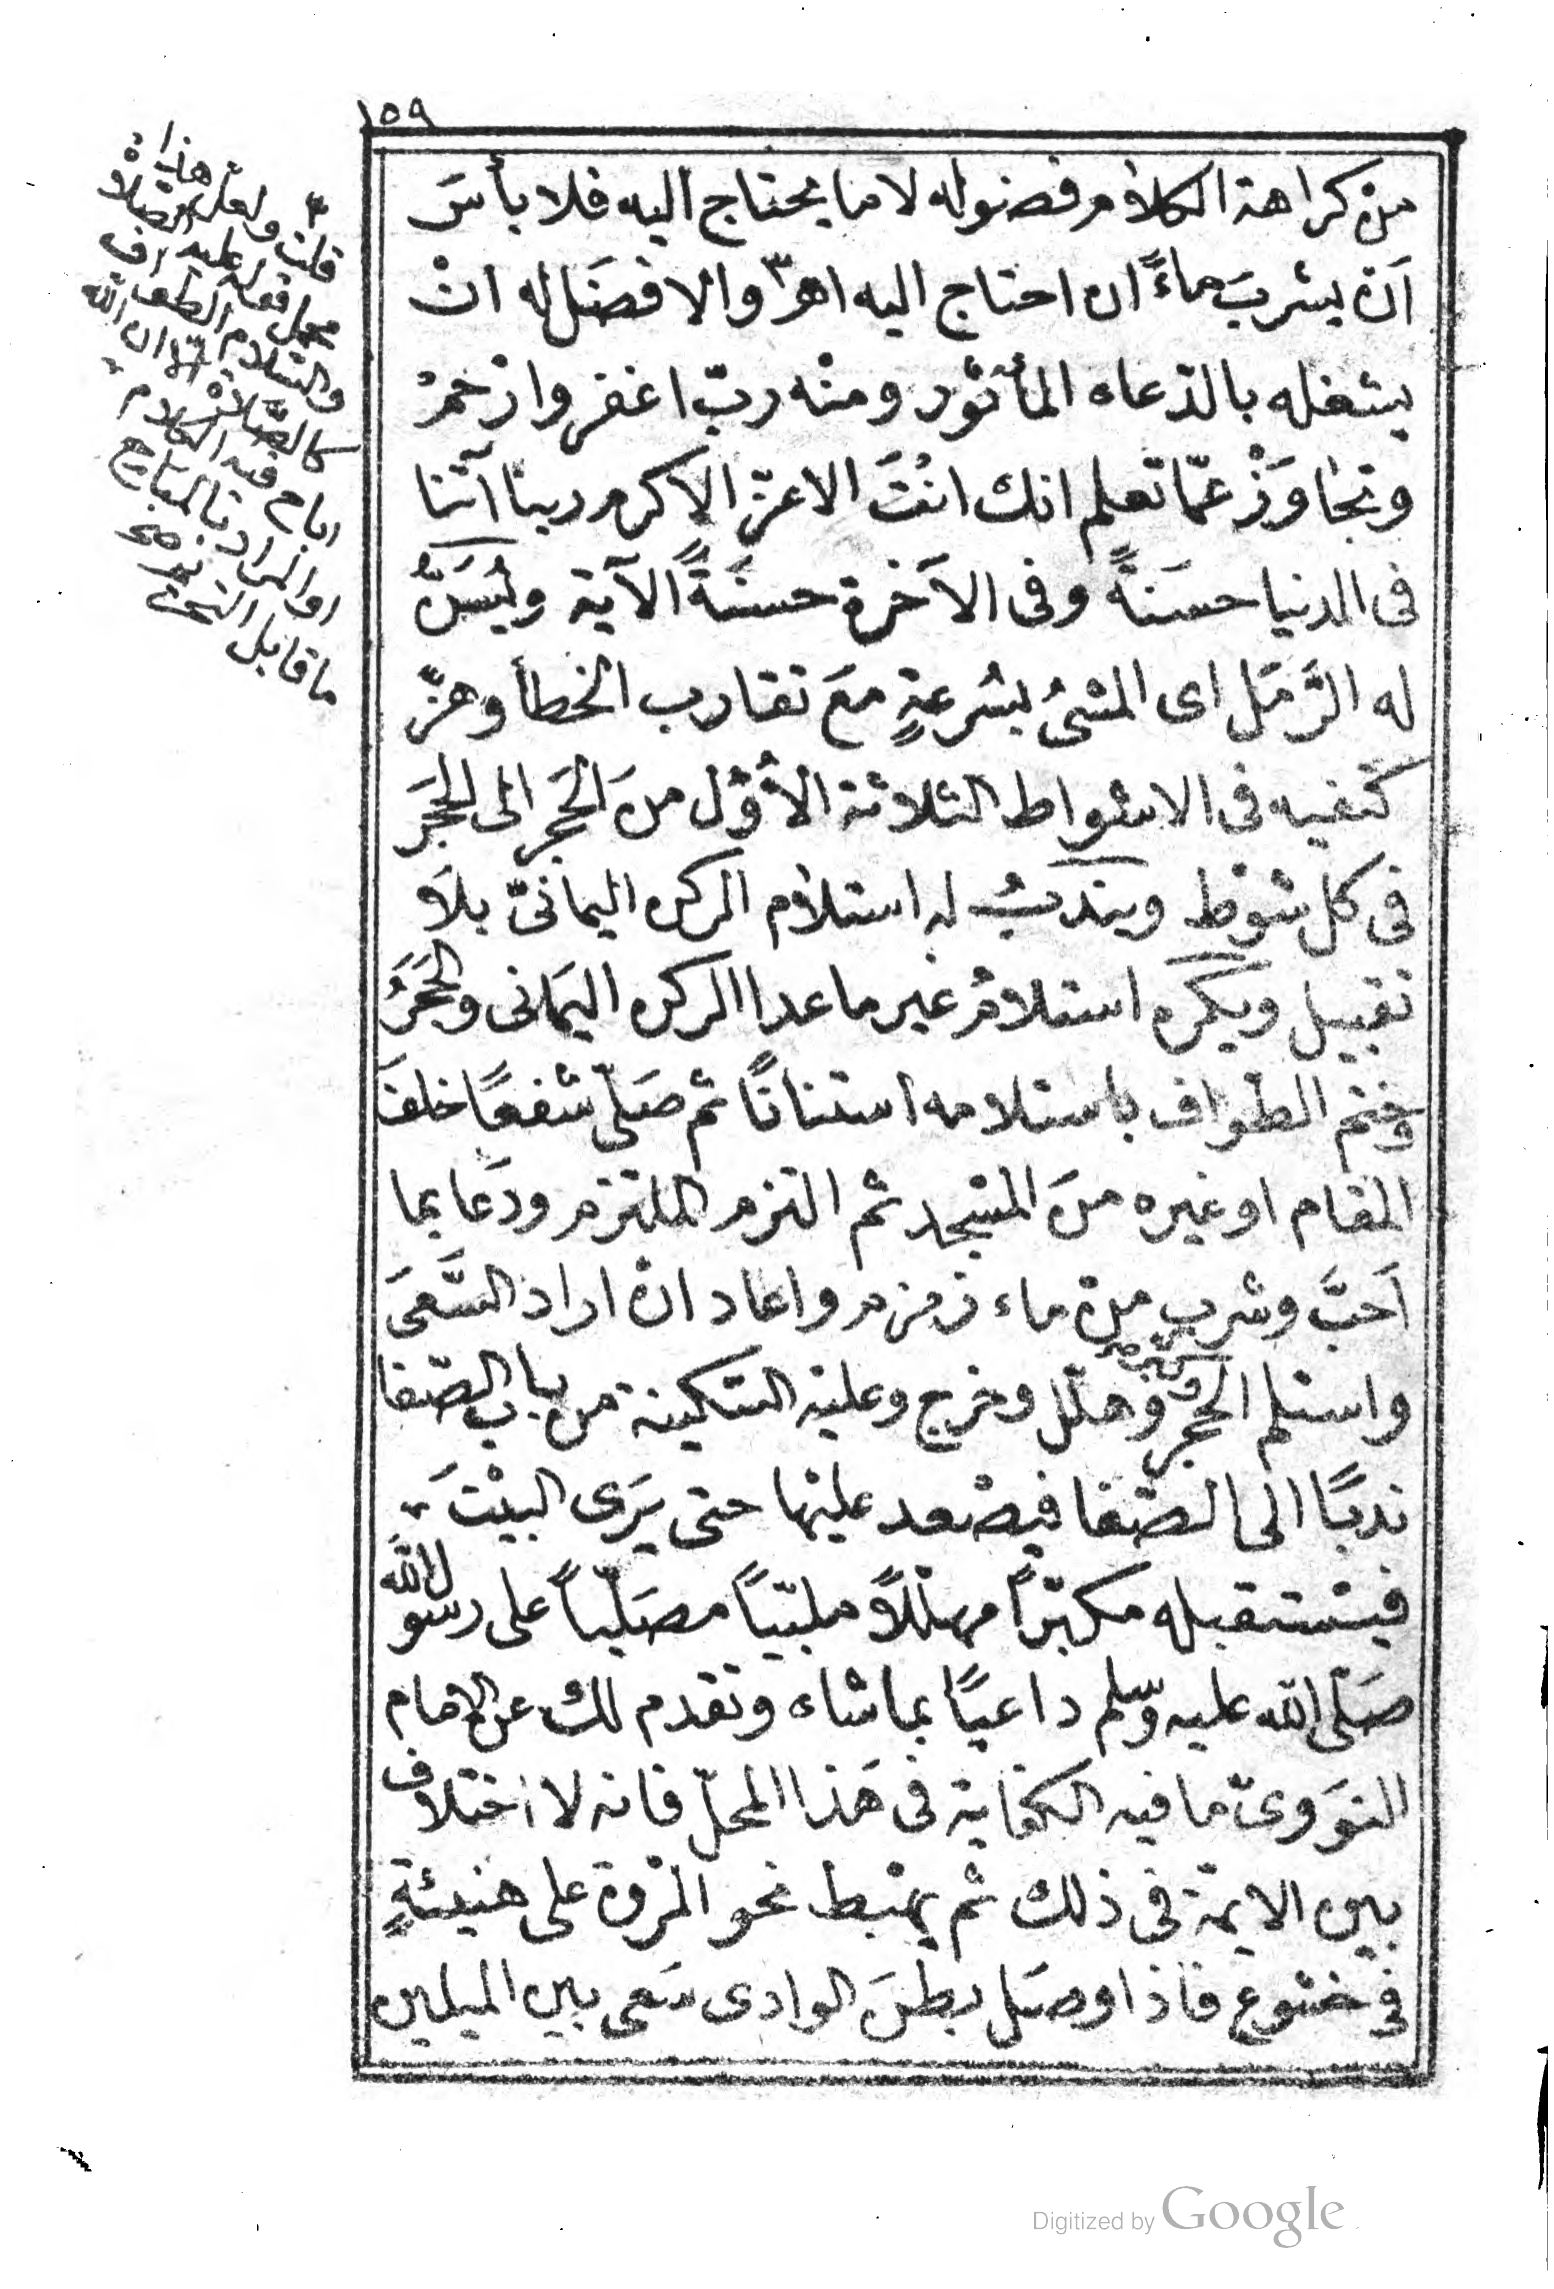 ١٥٩
مِنْ كراهة الكلام فضوله لا ما يحتاج اليه فلا بأسَ
اَنْ يشربَ ماءً ان احتاج اليه اهـ ٣ والا فضَل له انْ
يشغله بالدّعاء المأثور ومنْه ربّ اغفر وارْحمْ
وتجاوَزْ عمّا تعلم انك انْتَ الاعزّ الاكرم ربنا آتنا
فى الدنيا حسَنةً وفى الآخرة حسنَةً الآية ويُسَنُّ
له الرَّمَل اى المشىُ بسُرعةٍ مَعَ تقارب الخطأ وهزّ
كتفيه فى الاشواط الثلاثة الأُوَل منَ الحَجَر الى الحجَر
فى كل شوْط ويندَبُ له استلام الركن اليمانىّ بلَا
تقبيل ويكره استلامُ غير ما عدا الركن اليمَانى والحَجَرُ
وختم الطّواف باستلامه استنانًا ثم صَلّى شفعًا خلفَ
المقام او غيره منَ المسْجد ثم التزم الملتزم ودَعا بما
اَحبَّ وشرب منْ ماء زمزم وعاد انْ اراد السَّعىَ
واستلم الحجر وكبر وهلّل وخرج وعليْه السّكينة من باب الصّفا
ندبًا الى الصّفا فيصْعد عليْها حتى يَرَى البيْتَ
فيسْتقبله مكبّراً مهلّلاً ملبّيًا مصَلّياً على رسول الله
صَلّى الله عليه وسّلم داعيًا بما شاء وتقدم لك عن الامام
النوَوىّ ما فيه الكفاية فى هَذا المحلّ فانه لا اختلاف
بين الايمّة فى ذلك ثم يهْبط نحو المرْوة على هنيئةٍ
فى خشوع فاذا وصَل بطنَ الوادى سَعى بين الميلين
٣
قلت ولعلّ هذا
محمل فعله عليه الصّلاة
والسّلام الطواف
كالصّلاة الا ان الله
اباح فيه الكلام
او المراد بالمباح
ما قابل التحريم
Digitized by Google